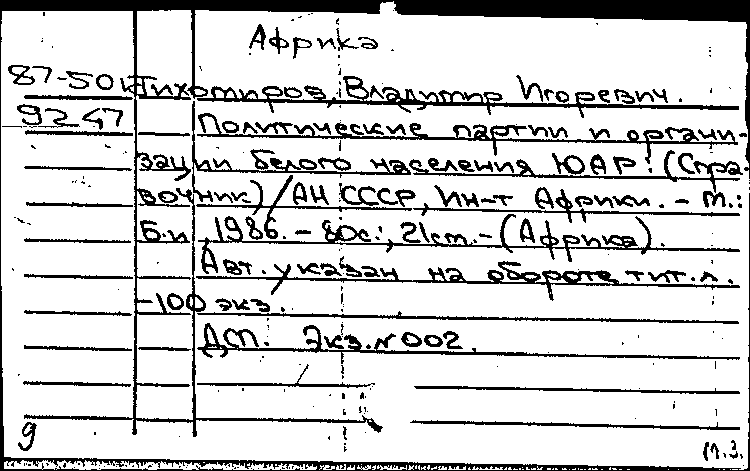 Африка.
87-50к Тихомиров, Владимир Игоревич.
9247 Политические партии и органи-
зации белого населения ЮАР: (Спра-
вочник) / АН СССР, Ин-т Африки. - М.:
Б.и., 1986. - 80с.; 21см. - (Африка).
Авт. указан на обороте тит.л.
-100 экз.
ДСП. Экз.№002.
9
М.З.